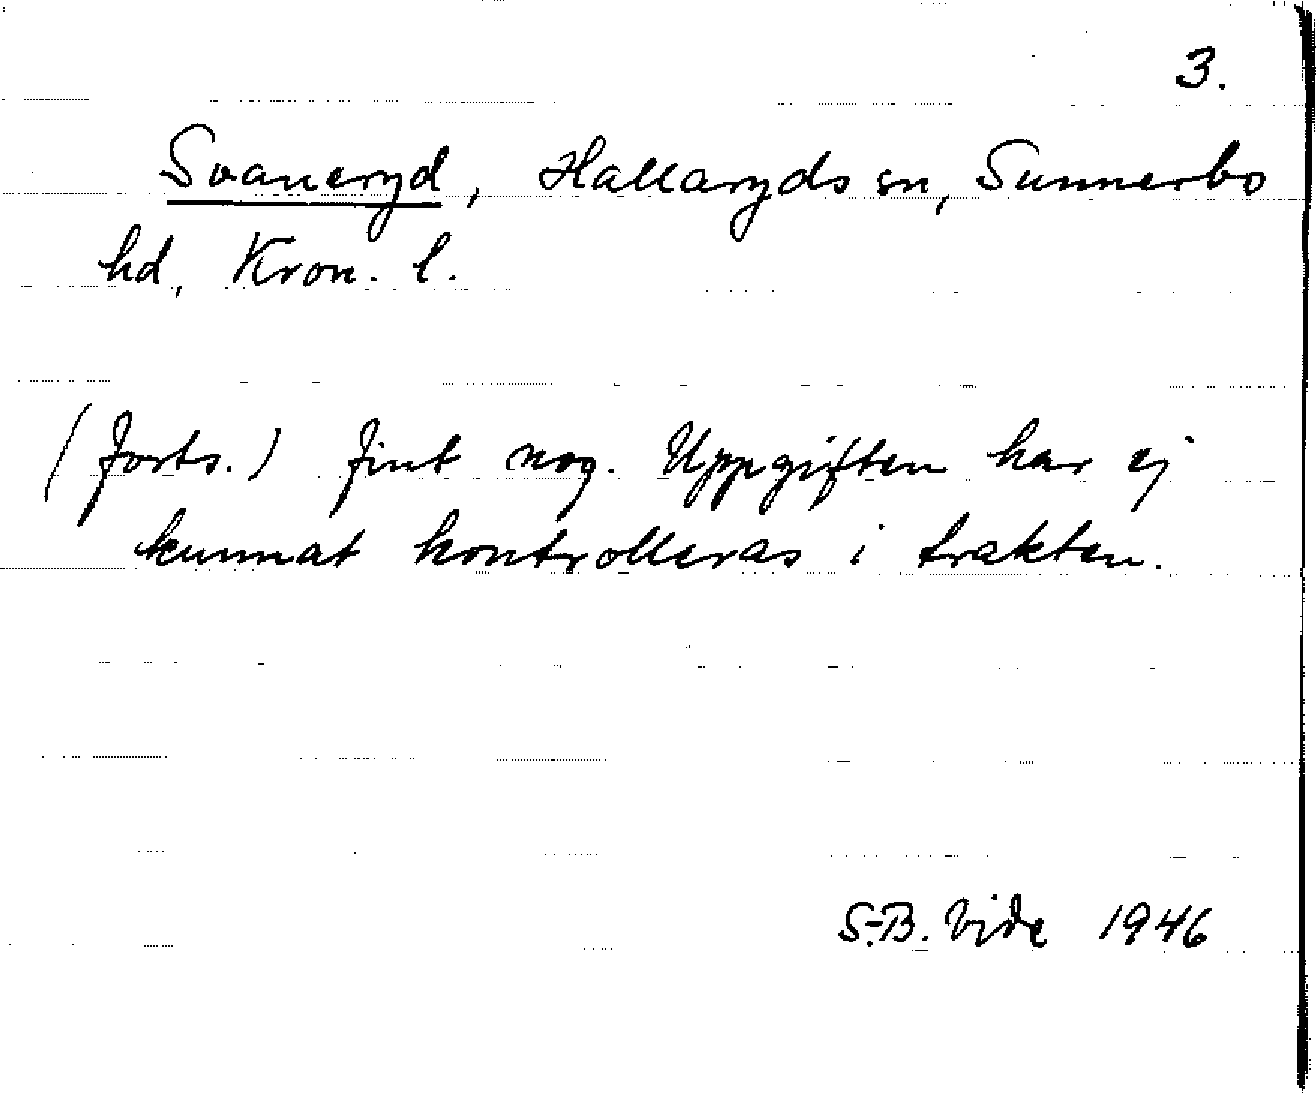 3.
Svaneryd, Hallaryds sn, Sunnerbo
hd, Kron. l.
(forts.) fint nog. Uppgiften har ej
kunnat kontrolleras i trakten.
S.-B. Vide 1946